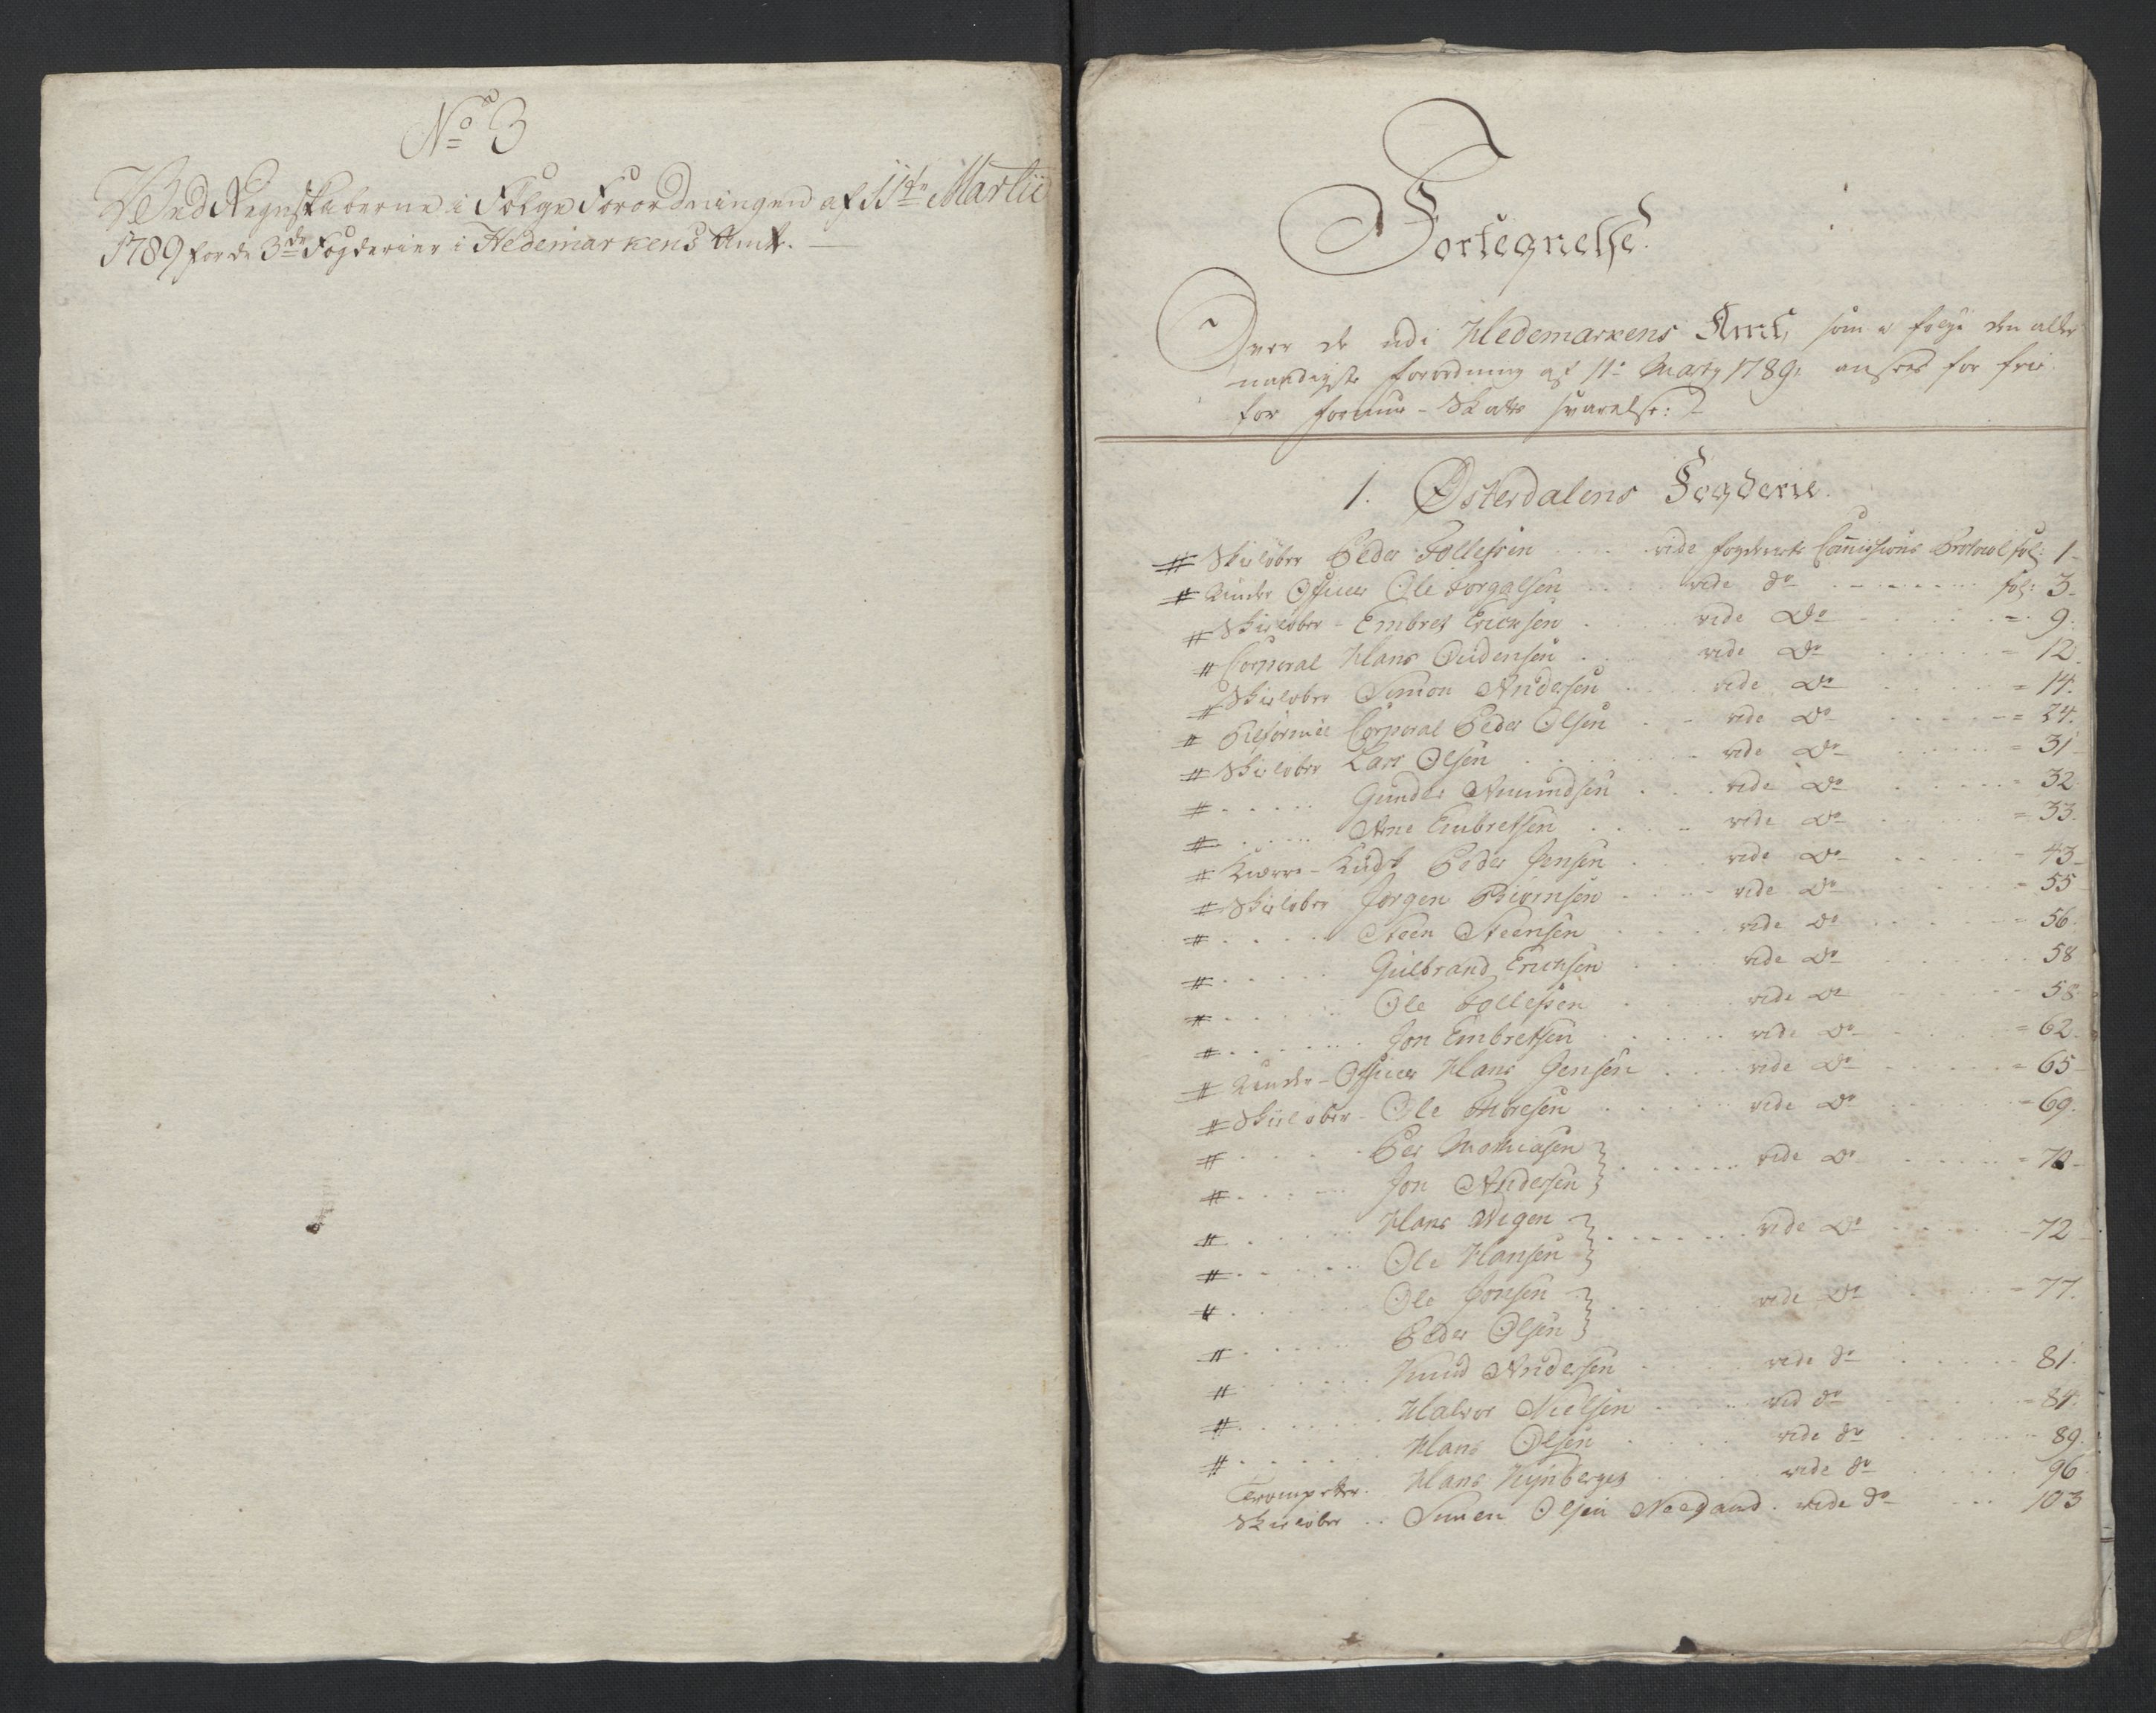 No 3
Ved Regnskaberne i Følge Forordningen af 11te Martii
1789 for de 3de Fogderier i Hedemarkens Amt. —
Fortegnelse.
Over de udi Hedemarkens Amt, som i følge den aller
naadigste forordning af 11te Marty 1789, ansees for frie
for formue-Skatts svarelse:
1. Østerdalens Fogderie.
# Skieløber Peder Tollefsen . . . . vide fogderiets Commissions Protocol fol: 1-
# Under Officer Ole Torgalsen . . . . vide do . . . . fol: 3-
# Skieløber - Embret Ericksen . . . . vide Do . . . . = 9.
# Corporal Hans Oudensen . . . . vide Do . . . . = 12.
# Skieløber Simon Andersen . . . . vide Do . . . . = 14.
# Reformée Corporal Peder Olsen . . vide Do . . . . = 24.
# Skieløber Lars Olsen . . . . vide Do . . . . = 31
# . . . . . Gunder Amundsen . . . vide Do . . . . = 32
# . . . . . Arne Embretsen . . . . vide Do . . . . = 33.
# Kiærre-Kudsk Peder Jensen . . . vide Do . . . . - 43-
# Skieløber Jørgen Biørnsen . . . . vide Do . . . . = 55
# . . . . Steen Steensen . . . . vide Do . . . . - 56.
# . . . . . Gulbrand Ericksen . . . . vide Do . . . . 58
# . . . . . Ole Tollefsen . . . . vide Do . . . . 58
# . . . . . . Jon Embretsen . . . . vide Do . . . . = 62.
# Under-Officer Hans Jensen . . . vide Do . . . . = 65-
# Skieløber - Ole Thoresen . . . . vide Do . . . . - 69.
# . . . . . Per Mathiasen }
# . . . . . Jon Andersen } . . . . vide Do . . . . = 72-
# . . . . . Hans Wigen }
# . . . . . Ole Hansen } . . . . vide Do . . . . - 72-
# . . . . . Ole Jonsen }
# . . . . . Peder Olsen } . . . . vide Do . . . . = 77.
# . . . . . Knud Andersen . . . . vide do . . . . 81.
# . . . . . Halvor Nielsen . . . . vid do . . . . - 84.
# . . . . . Hans Olsen . . . . vide do . . . . 89.
Trompetter. Hans . . . . vide do . . . . 96
Skieløber . . Simen Olsen . vide do . . . 103